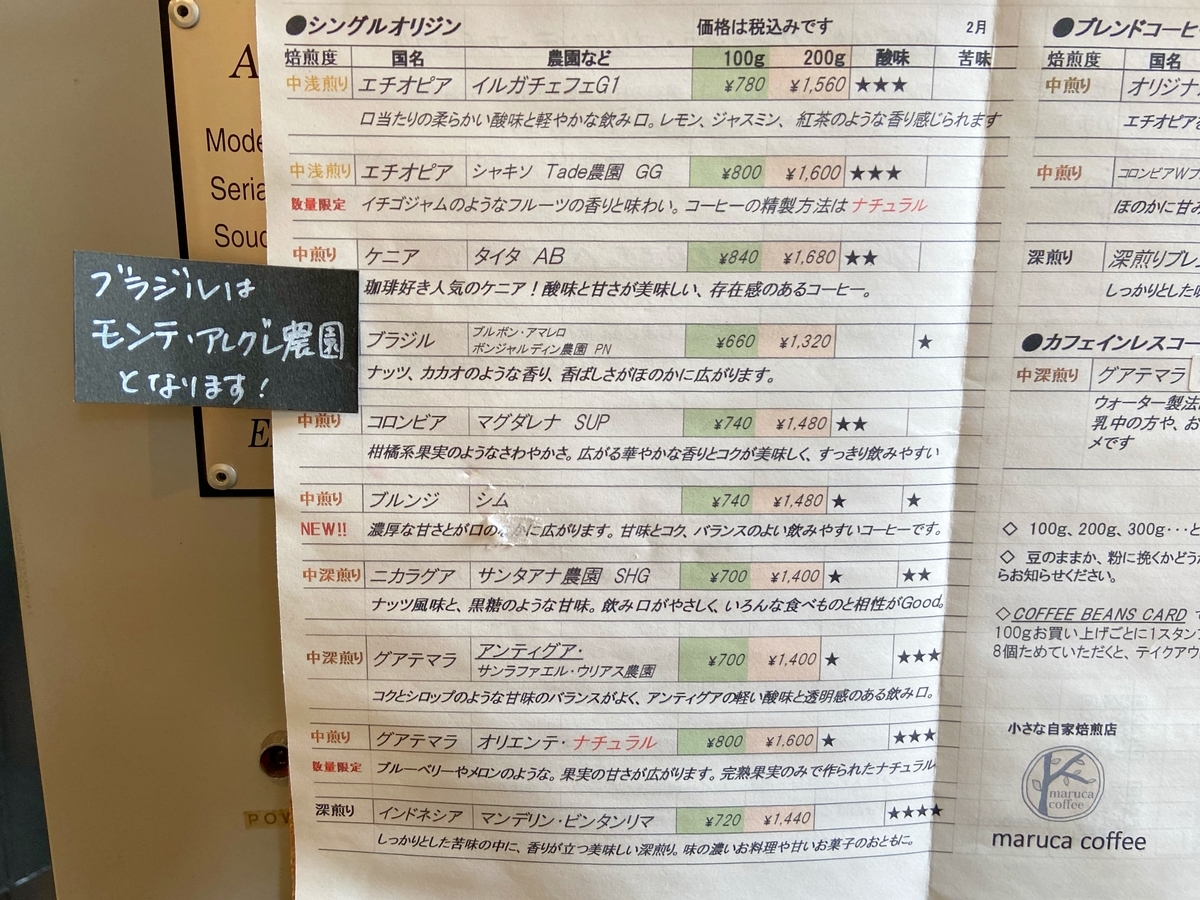 ●シングルオリジン 価格は税込みです 2月
焙煎度 国名 農園など 100g 200g 酸味 苦味
中浅煎り エチオピア イルガチェフェG1 ¥780 ¥1,560 ★★★
口当たりの柔らかい酸味と軽やかな飲み口。レモン、ジャスミン、紅茶のような香り感じられます
中浅煎り エチオピア シャキソ Tade農園 GG ¥800 ¥1,600 ★★★
数量限定 イチゴジャムのようなフルーツの香りと味わい。コーヒーの精製方法はナチュラル
中煎り ケニア タイタ AB ¥840 ¥1,680 ★★
珈琲好き人気のケニア！酸味と甘さが美味しい、存在感のあるコーヒー。
ブラジル ブルボン・アマレロ ボンジャルディン農園 PN ¥660 ¥1,320 ★
ナッツ、カカオのような香り、香ばしさがほのかに広がります。
中煎り コロンビア マグダレナ SUP ¥740 ¥1,480 ★★
柑橘系果実のようなさわやかさ。広がる華やかな香りとコクが美味しく、すっきり飲みやすい
中煎り ブルンジ シム ¥740 ¥1,480 ★ ★
NEW!! 濃厚な甘さとが口の に広がります。甘味とコク、バランスのよい飲みやすいコーヒーです。
中深煎り ニカラグア サンタアナ農園 SHG ¥700 ¥1,400 ★ ★★
ナッツ風味と、黒糖のような甘味。飲み口がやさしく、いろんな食べものと相性がGood。
中深煎り グアテマラ アンティグア・ サンラファエル・ウリアス農園 ¥700 ¥1,400 ★ ★★★
コクとシロップのような甘味のバランスがよく、アンティグアの軽い酸味と透明感のある飲み口。
中煎り グアテマラ オリエンテ・ナチュラル ¥800 ¥1,600 ★ ★★★
数量限定 ブルーベリーやメロンのような。果実の甘さが広がります。完熟果実のみで作られたナチュラル
深煎り インドネシア マンデリン・ビンタンリマ ¥720 ¥1,440 ★★★★
しっかりとした苦味の中に、香りが立つ美味しい深煎り。味の濃いお料理や甘いお菓子のおともに。
ブラジルは
モンテ・アレグレ農園
となります！
●ブレンドコーヒ
焙煎度 国名
中煎り オリジナ
エチオピア
中煎り コロンビアWブ
ほのかに甘
深煎り 深煎りブレ
しっかりとした
●カフェインレスコー
中深煎り グアテマラ
ウォーター製法
乳中の方や、お
メです
◇ 100g、200g、300g･･･と
◇ 豆のままか、粉に挽くかどうか
らお知らせください。
◇COFFEE BEANS CARD
100gお買い上げごとに1スタン
8個ためていただくと、テイクアウ
小さな自家焙煎店
maruca
coffee
maruca coffee
A
Mode
Seria
Souc
E
POW